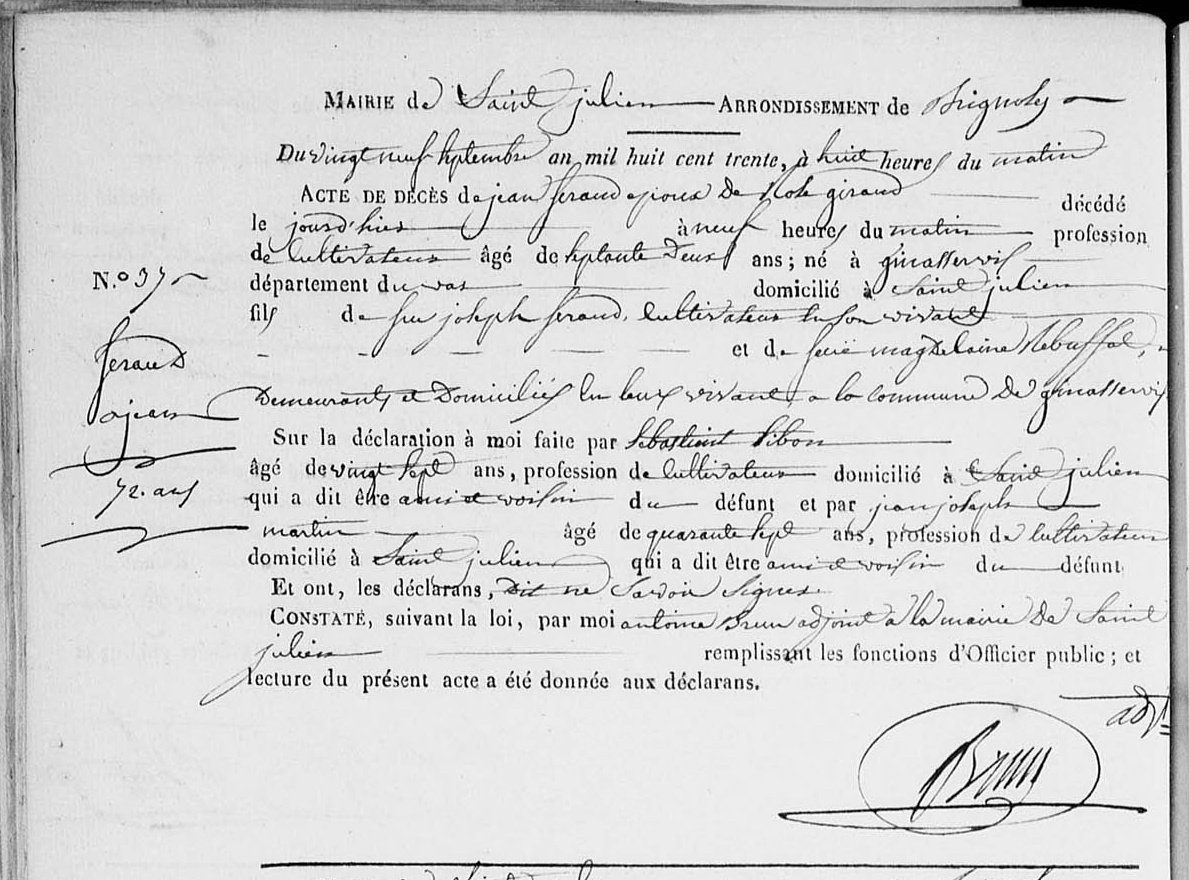 MAIRIE de Saint julien ARRONDISSEMENT de Brignoles
Du vingt neuf septembre an mil huit cent trente, à huit heures du matin
ACTE DE DÉCÈS de jean feraud epoux De Rose giraud décédé
le jourd'hier à neuf heures du matin profession
de cultivateur âgé de septante Deux ans; né à ginasservis
N.º 37
département du var domicilié à Saint julien
fils de feu joseph feraud, cultivateur en son vivant
et de feue magdelaine Rebuffat,
feraud
jean
72. ans
Demeurants et Domiciliés en leur vivant a la commune De ginasservis
Sur la déclaration à moi faite par Sebastient Sibon
âgé de vingt sept ans, profession de cultivateur domicilié à Saint julien
qui a dit être ami et voisin du défunt et par jean joseph
martin âgé de quarante sept ans, profession de cultivateur
domicilié à Saint julien qui a dit être ami et voisin du défunt
Et ont, les déclarans, Dit ne Savoir Signer
CONSTATÉ, suivant la loi, par moi antoine Brun adjoint a la mairie De Saint
julien remplissant les fonctions d'Officier public; et
lecture du présent acte a été donnée aux déclarans.
adjt
Brun